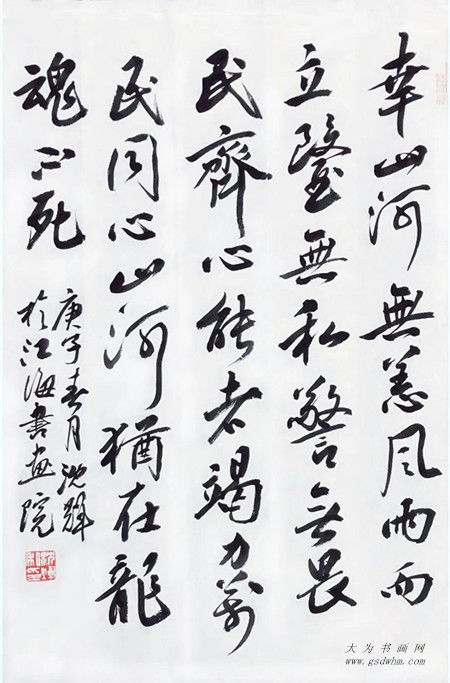 幸山河無恙風雨而
立醫無私警無畏
民齊心能者竭力萬
民同心山河猶在龍
魂不死
庚子春月沈輝
於江海書畫院
大为书画网
www.gsdwhm.com